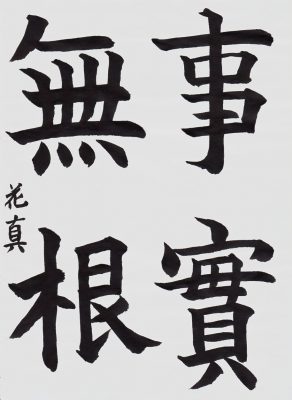 事實
無根
花真